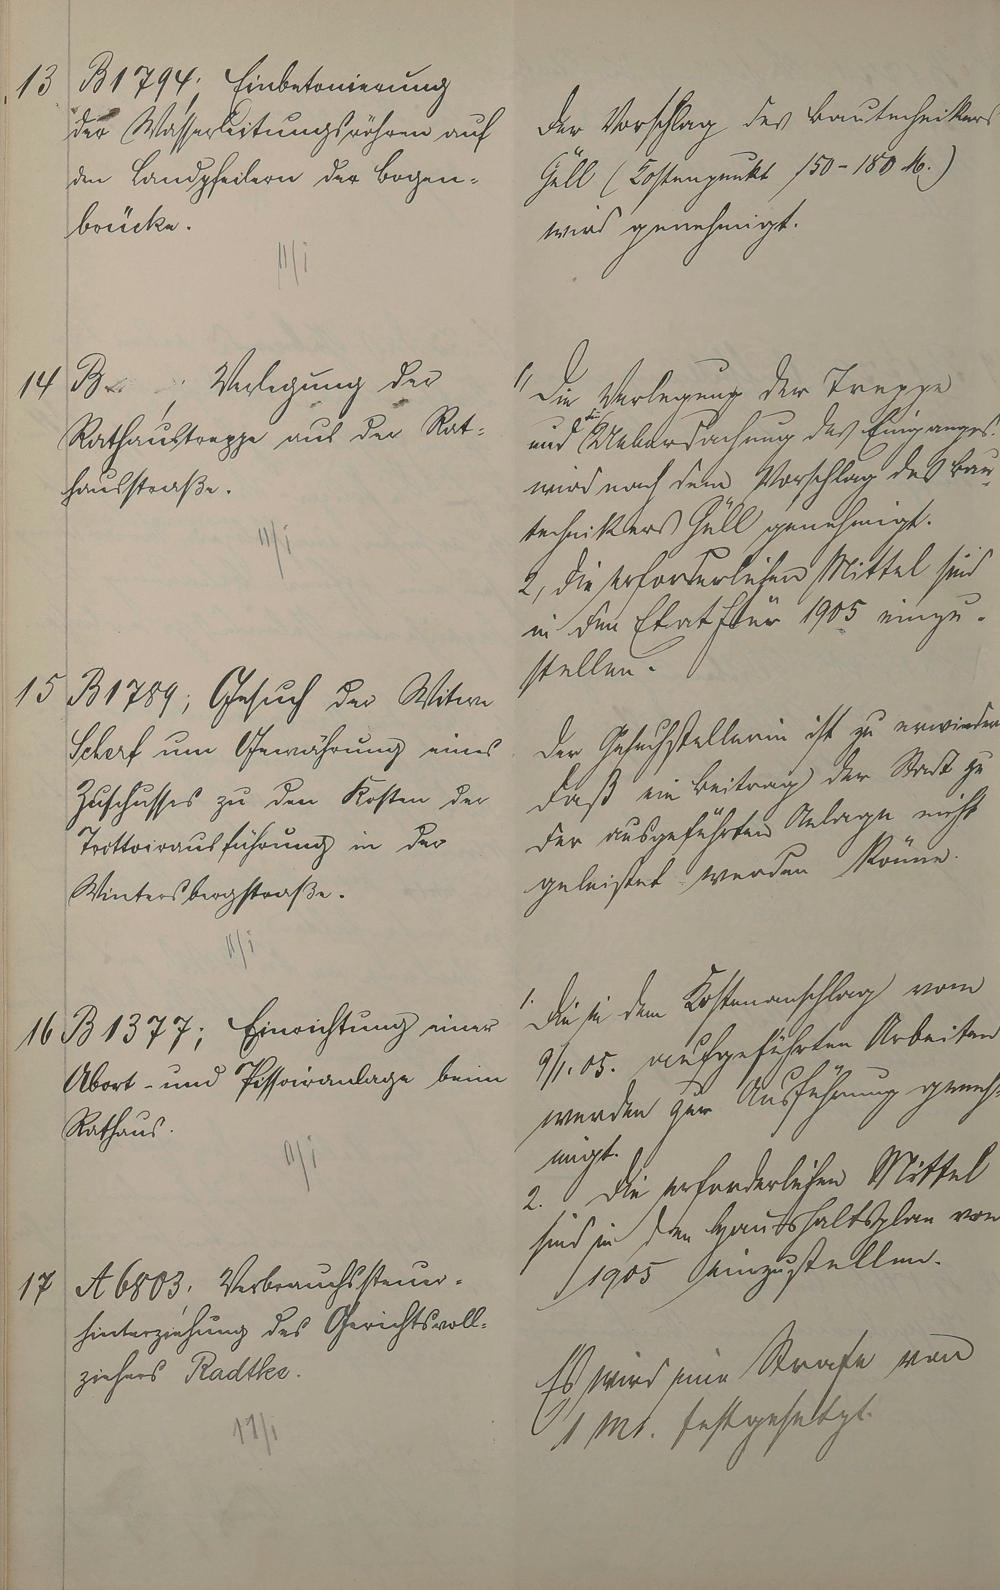 13 B 1794; Einbetonierung
der Wasserleitungsröhren auf
den Landpfeilern der Bogen-
brücke.
11/i
Der Vorschlag des Bautechnikers
Güll (Kostenpunkt 150-180 M.)
wird genehmigt.
14 B ; Verlegung der
Rathaustreppe aus der Rat-
hausstraße.
11/i
1, Die Verlegung der Treppe
und die Ueberdachung des Einganges
wird nach dem Vorschlag des Bau-
technikers Güll genehmigt.
2, die erforderlichen Mittel sind
in den Etat für 1905 einzu-
stellen.
15 B 1789; Gesuch der Witwe
Scherf um Gewährung eines
Zuschusses zu den Kosten der
Trottoirausführung in der
Wintersbergstraße.
11/i
Der Gesuchstellerin ist zu erwidern
daß ein Beitrag der Stadt zu
der ausgeführten Anlage nicht
geleistet werden könne.
16 B 1377; Einrichtung einer
Abort- und Pissoiranlage beim
Rathaus.
11/i
1. Die in dem Kostenanschlag vom
9/1.05. aufgeführten Arbeiten
werden zur Ausführung geneh-
migt.
2. Die erforderlichen Mittel
sind in den Haushaltsplan von
1905 einzustellen.
17 A 6803; Verbrauchssteuer-
hinterziehung des Gerichtsvoll-
ziehers Radtke.
11/i
Es wird eine Strafe von
1 Mk. festgesetzt.